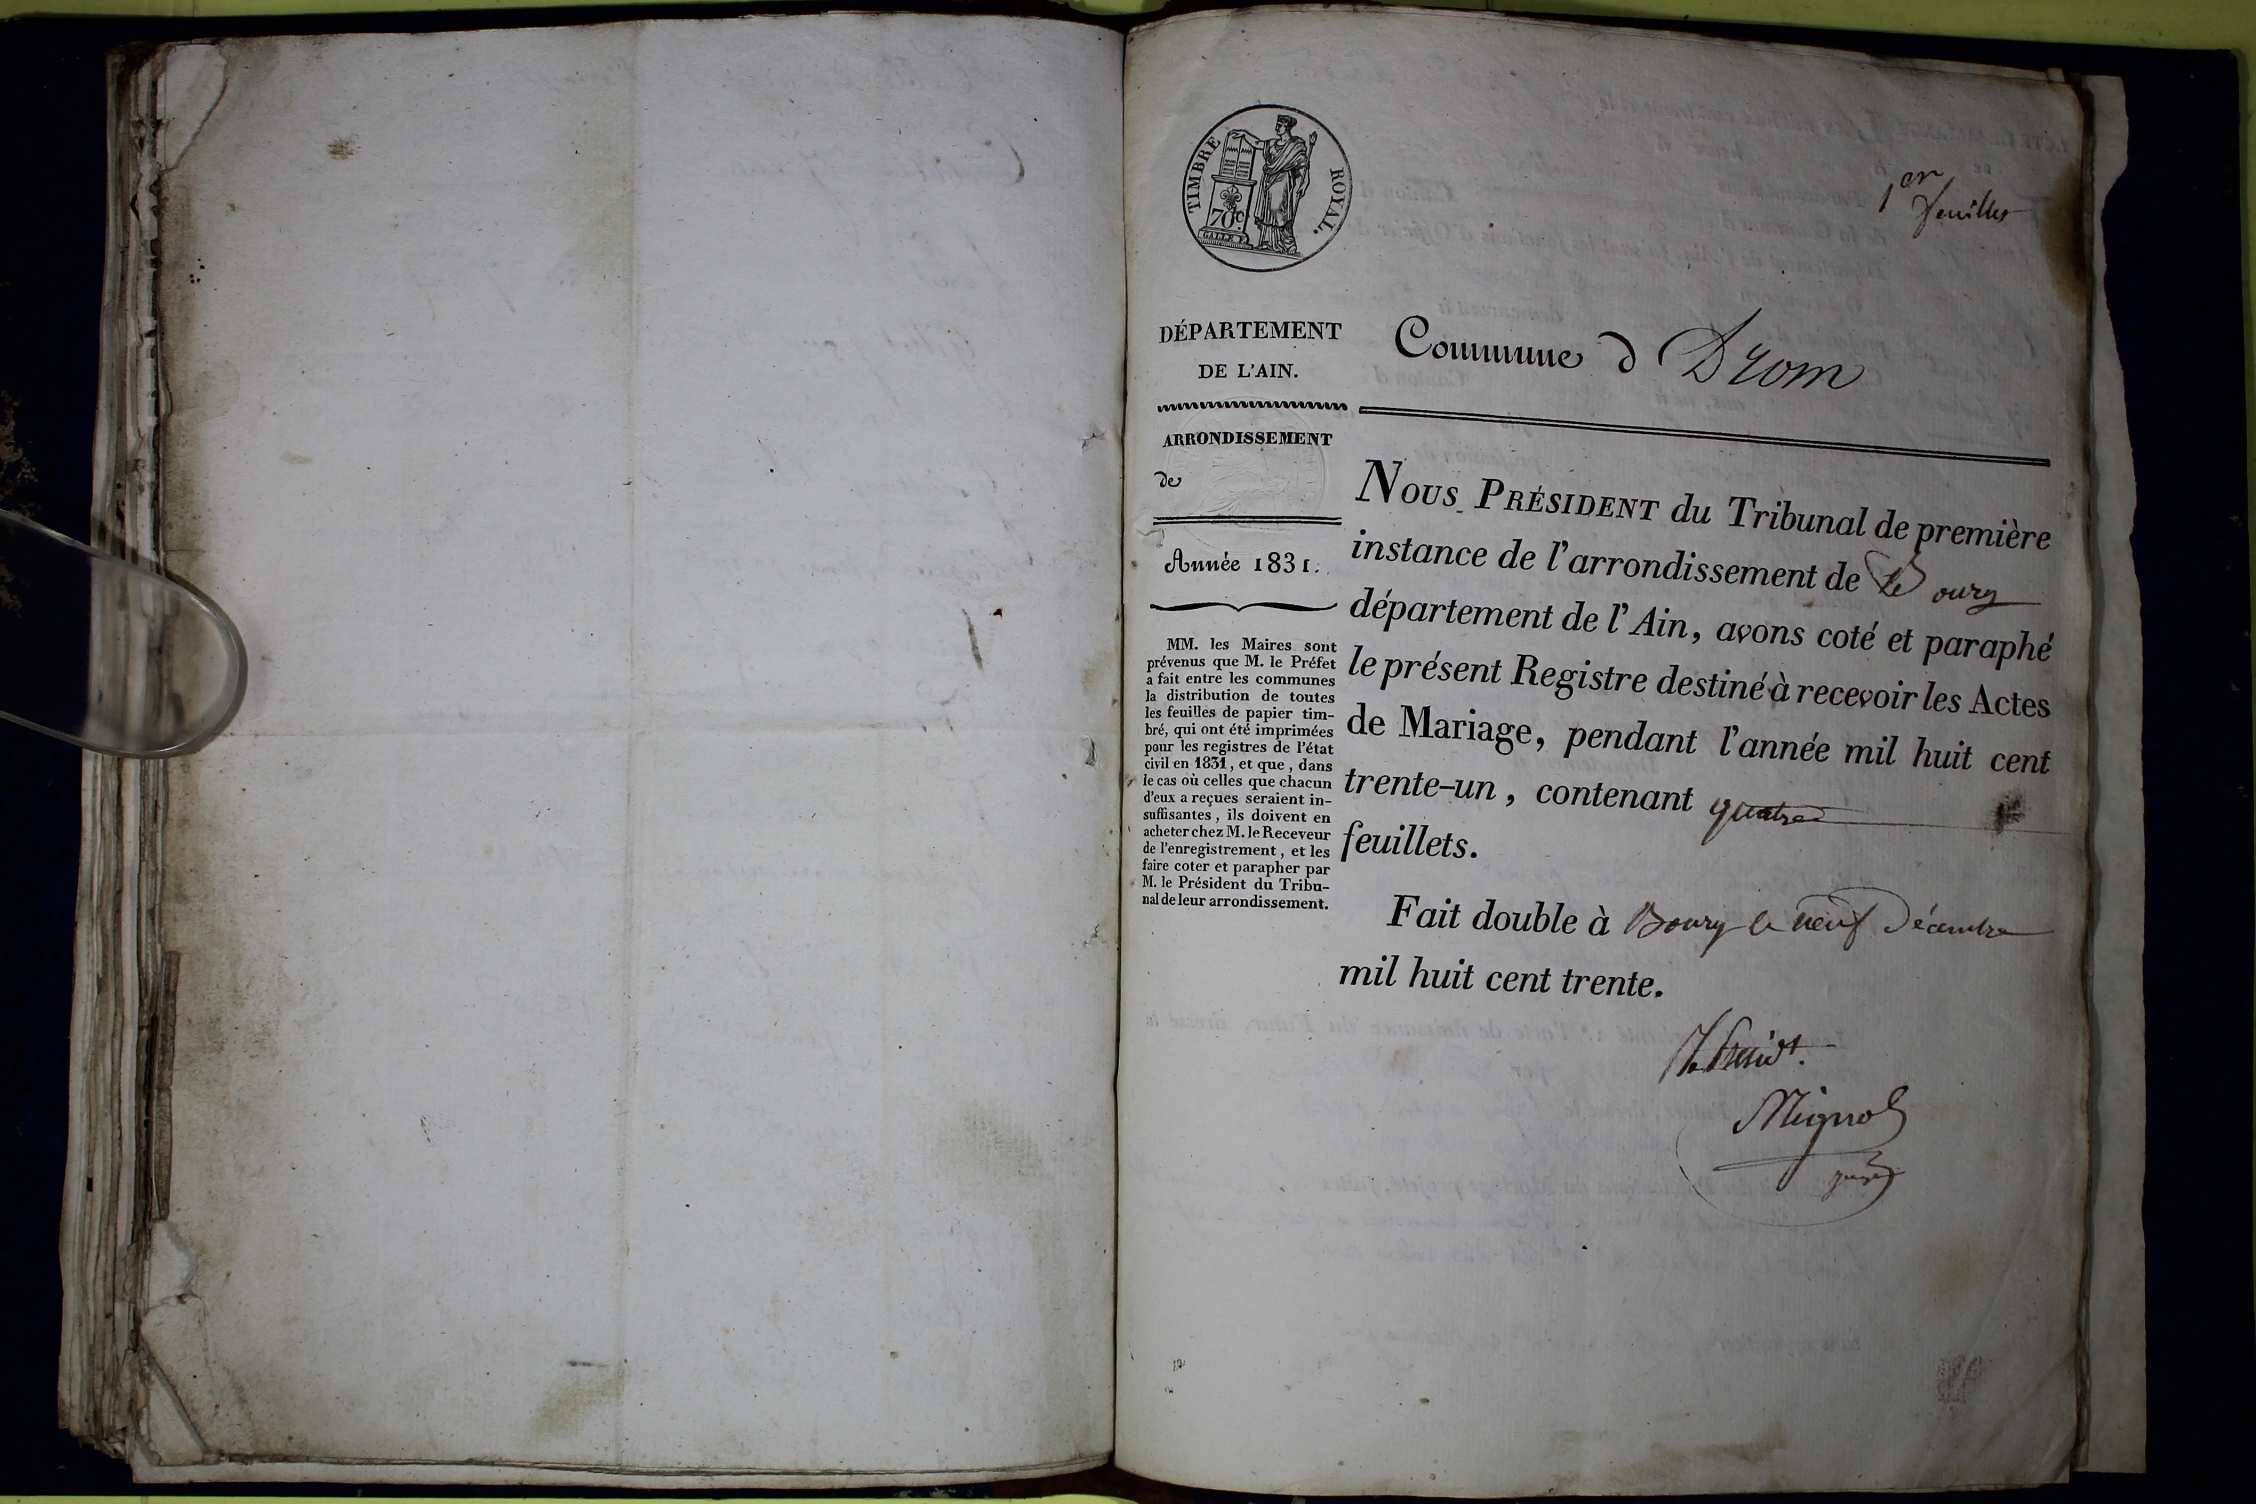 TIMBRE ROYAL.
70c.
1er feuillet
DÉPARTEMENT
DE L'AIN.
Commune d Drom
ARRONDISSEMENT
de
Année 1831.
MM. les Maires sont
prévenus que M. le Préfet
a fait entre les communes
la distribution de toutes
les feuilles de papier tim-
bré, qui ont été imprimées
pour les registres de l'état
civil en 1831, et que, dans
le cas où celles que chacun
d'eux a reçues seraient in-
suffisantes, ils doivent en
acheter chez M. le Receveur
de l'enregistrement, et les
faire coter et parapher par
M. le Président du Tribu-
nal de leur arrondissement.
NOUS PRÉSIDENT du Tribunal de première
instance de l'arrondissement de Bourg
département de l'Ain, avons coté et paraphé
le présent Registre destiné à recevoir les Actes
de Mariage, pendant l'année mil huit cent
trente-un, contenant quatre
feuillets.
Fait double à Bourg le neuf Décembre
mil huit cent trente.